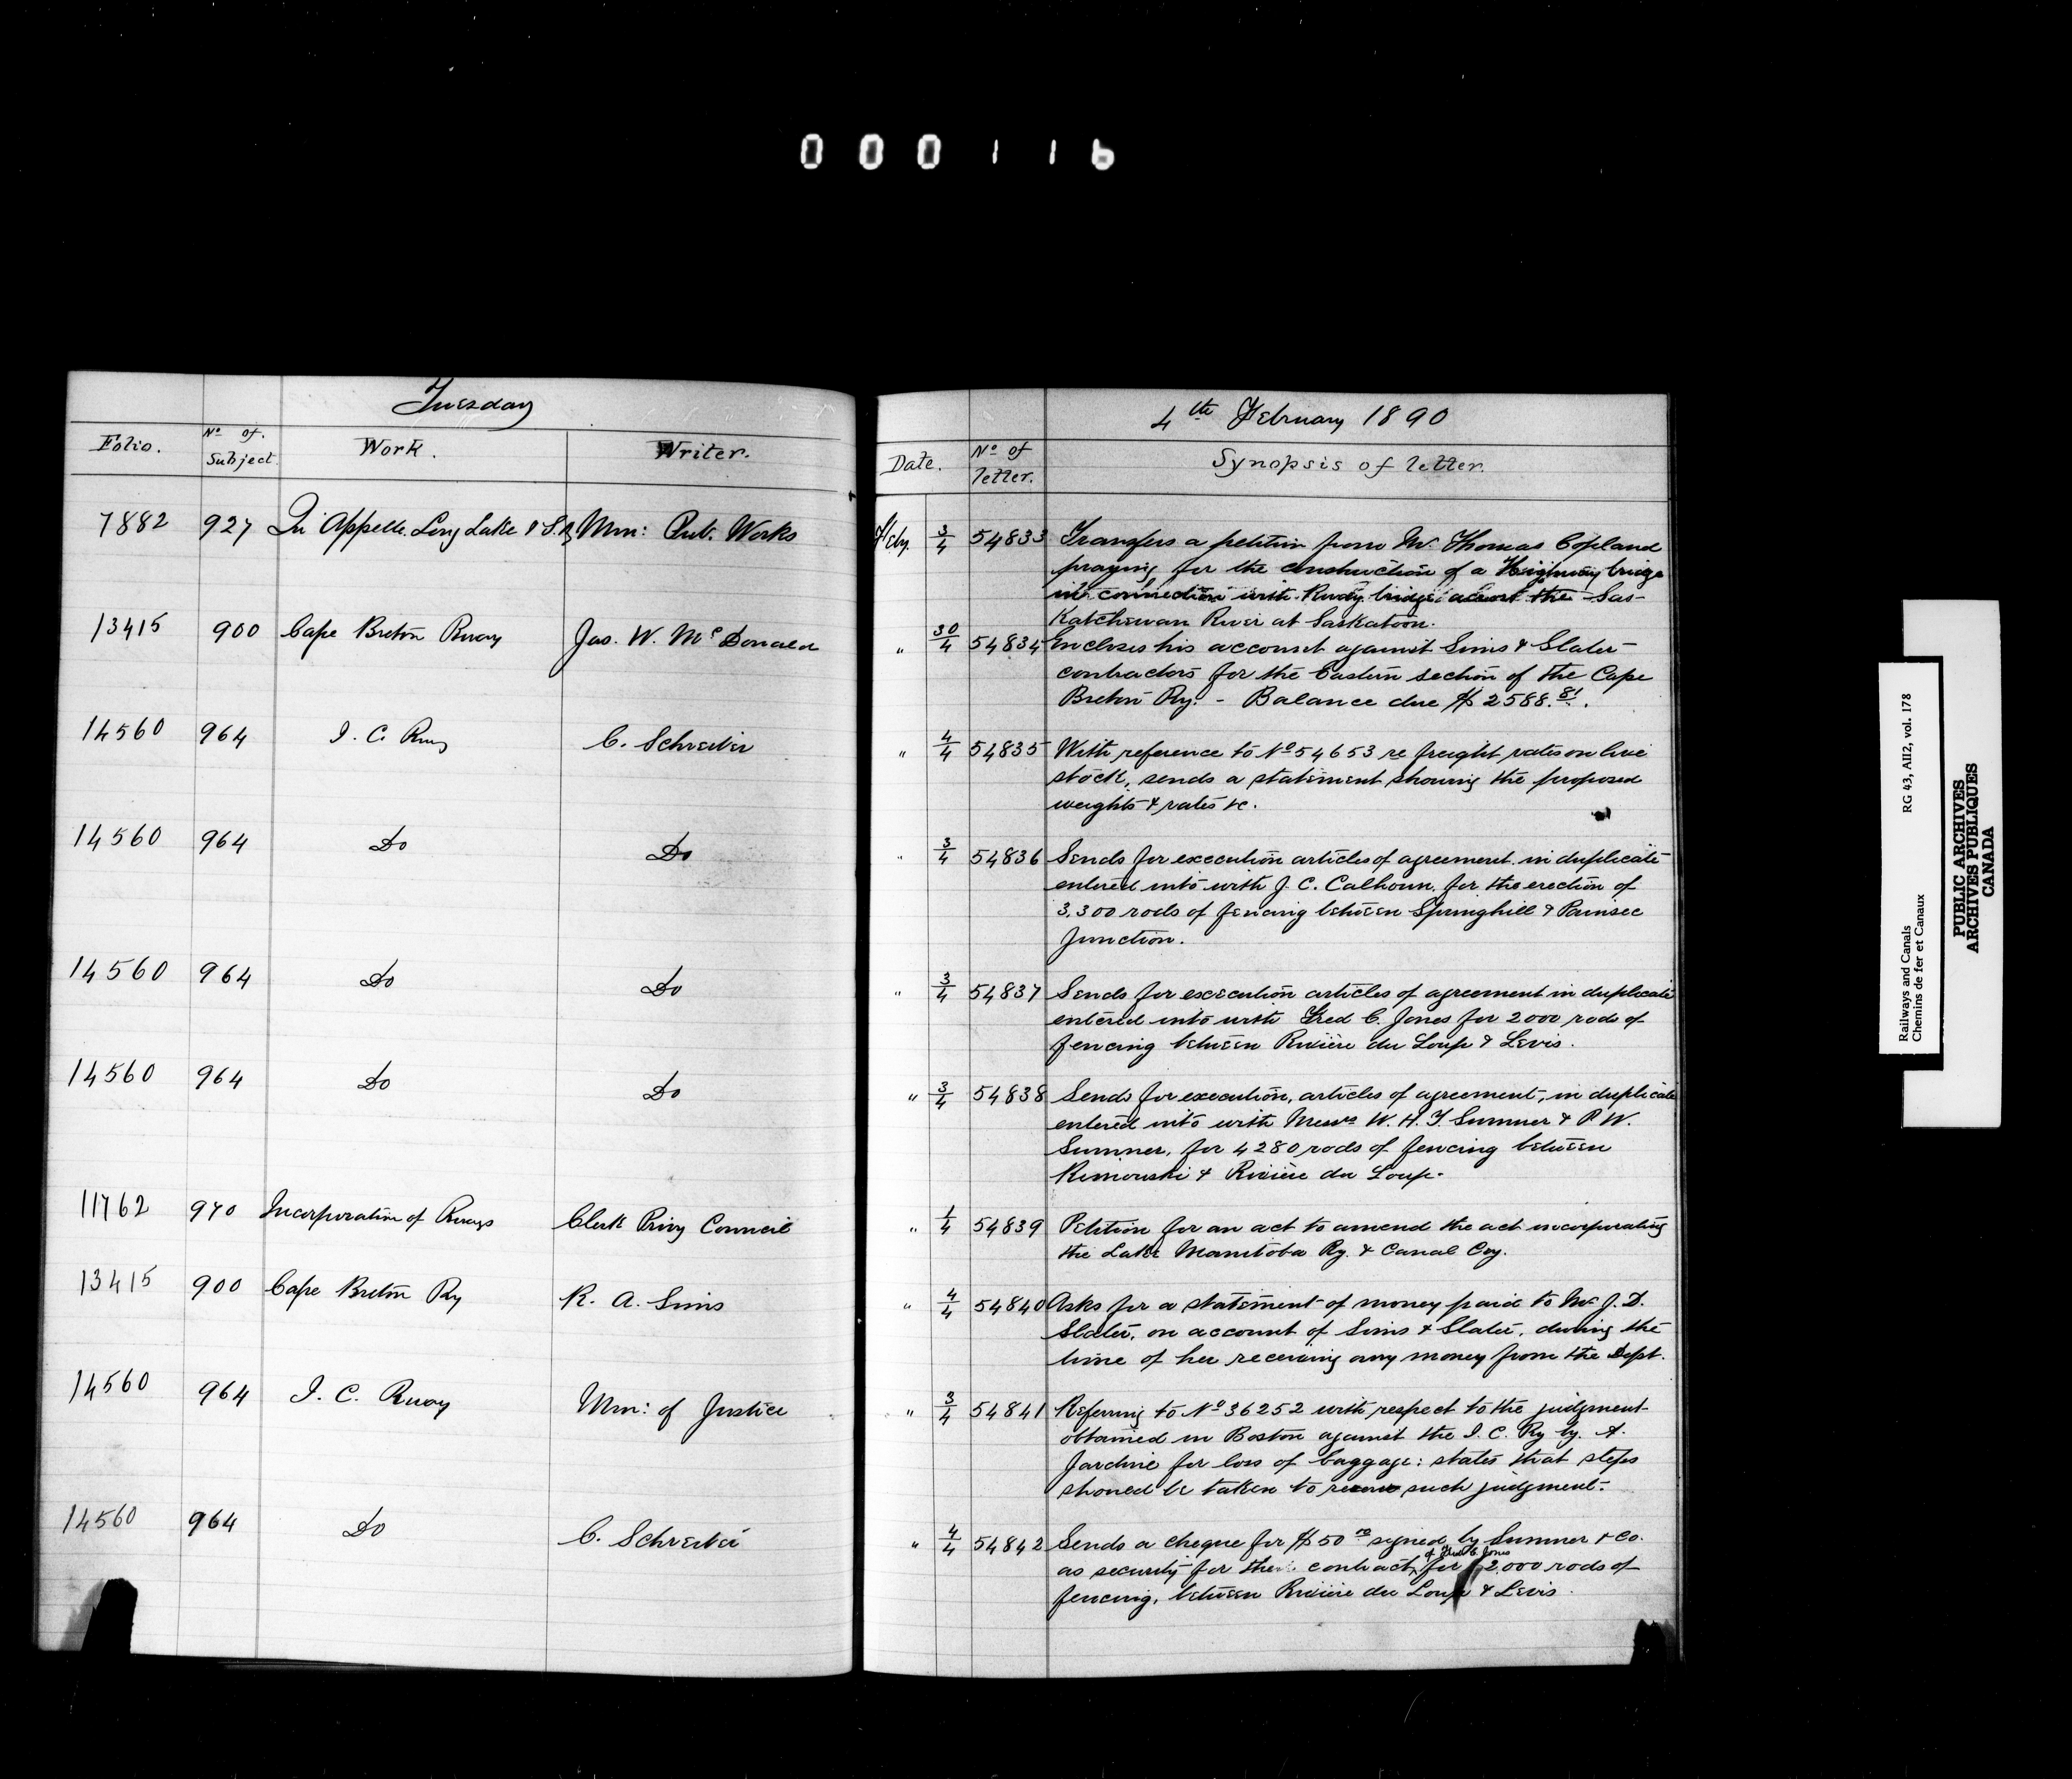 000116
Tuesday
Folio. No of. Subject Work. Writer.
7882 927 Qu'Appelle Long Lake & S. Ry Min: Pub. Works
13415 900 Cape Breton Rway Jas. W. McDonald
14560 964 I. C. Rwy C. Schreiber
14560 964 Do Do
14560 964 Do Do
14560 964 Do Do
11762 970 Incorporation of Rways Clerk Privy Council
13415 900 Cape Breton Ry R. A. Sims
14560 964 I. C. Rway Min: of Justice
14560 964 Do C. Schreiber
4th February 1890
Date. No of letter. Synopsis of letter.
Feby. 3/4 54833 Transfers a petition from Mr. Thomas Copland
praying for the construction of a Highway bridge
in connection with Rway bridge across the Sas-
katchewan River at Saskatoon.
" 30/4 54834 Encloses his account against Sims & Slater
contractors for the Eastern section of the Cape
Breton Ry. - Balance due $2588.81.
" 4/4 54835 With reference to No 54653 re freight rates on live
stock, sends a statement showing the proposed
weights & rates &c.
" 3/4 54836 Sends for execution articles of agreement in duplicate
entered into with J. C. Calhoun for the erection of
3,300 rods of fencing between Springhill & Painsec
Junction.
" 3/4 54837 Sends for execution articles of agreement in duplicate
entered into with Fred C. Jones for 2000 rods of
fencing between Rivière du Loup & Levis.
" 3/4 54838 Sends for execution, articles of agreement, in duplicate
entered into with Messrs W. H. T. Sumner & P W.
Sumner, for 4280 rods of fencing between
Rimouski & Rivière du Loup.
" 1/4 54839 Petition for an act to amend the act incorporating
the Lake Manitoba Ry. & Canal Coy.
" 4/4 54840 Asks for a statement of money paid to Mr J. D.
Slater, on account of Sims & Slater, during the
time of her receiving any money from the Dept.
" 3/4 54841 Referring to No 36252 with respect to the judgment
obtained in Boston against the I. C. Ry by. A.
Jardine for loss of baggage: states that steps
should be taken to such judgment.
" 4/4 54842 Sends a cheque for $50 00 signed by Sumner & Co.
as security for the contract of Fred C. Jones for 2,000 rods of
fencing, between Rivière du Loup & Levis.
Railways and Canals RG 43, AII2, vol. 178
Chemins de fer et Canaux
PUBLIC ARCHIVES
ARCHIVES PUBLIQUES
CANADA